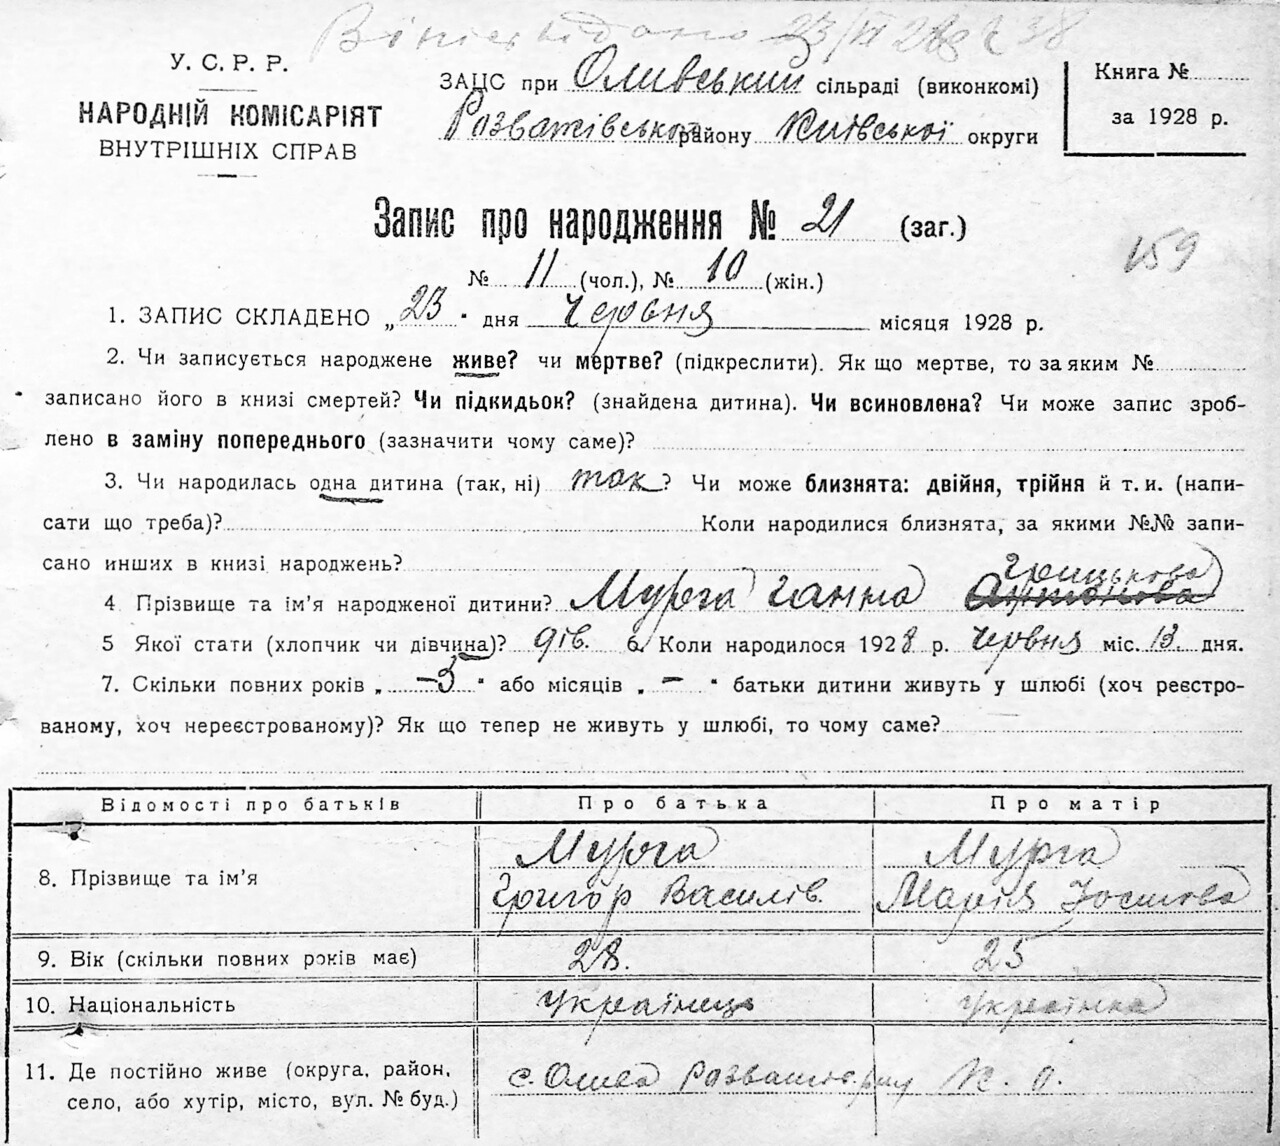 У. С. Р. Р.
НАРОДНІЙ КОМІСАРІЯТ
ВНУТРІШНІХ СПРАВ
ЗАЦС при Оливський сільраді (виконкомі)
Розважівського району Київської округи
Книга №
за 1928 р.
Запис про народження № 21 (заг.)
159
№ 11 (чол.), № 10 (жін.)
1. ЗАПИС СКЛАДЕНО „23" дня Червня місяця 1928 р.
2. Чи записується народжене живе? чи мертве? (підкреслити). Як що мертве, то за яким №
записано його в книзі смертей? Чи підкидьок? (знайдена дитина). Чи всиновлена? Чи може запис зроб-
лено в заміну попереднього (зазначити чому саме)?
3. Чи народилась одна дитина (так, ні) так? Чи може близнята: двійня, трійня й т. и. (напи-
сати що треба)? Коли народилися близнята, за якими №№ запи-
сано инших в книзі народжень?
Грицькова
4 Прізвище та ім'я народженої дитини? Мурга Ганна Антонова
5 Якої стати (хлопчик чи дівчина)? дів. 6. Коли народилося 1928 р. Червня міс. 13. дня.
7. Скільки повних років „ –3 " або місяців „ – " батьки дитини живуть у шлюбі (хоч реєстро-
ваному, хоч нереєстрованому)? Як що тепер не живуть у шлюбі, то чому саме?
Відомості про батьків Про батька Про матір
8. Прізвище та ім'я Мурга Григор Василів. Мурга Марія Йосипова
9. Вік (скільки повних років має) 28. 25
10. Національність Українець Українка
11. Де постійно живе (округа, район,
село, або хутір, місто, вул. № буд.) с. Олива К. о.